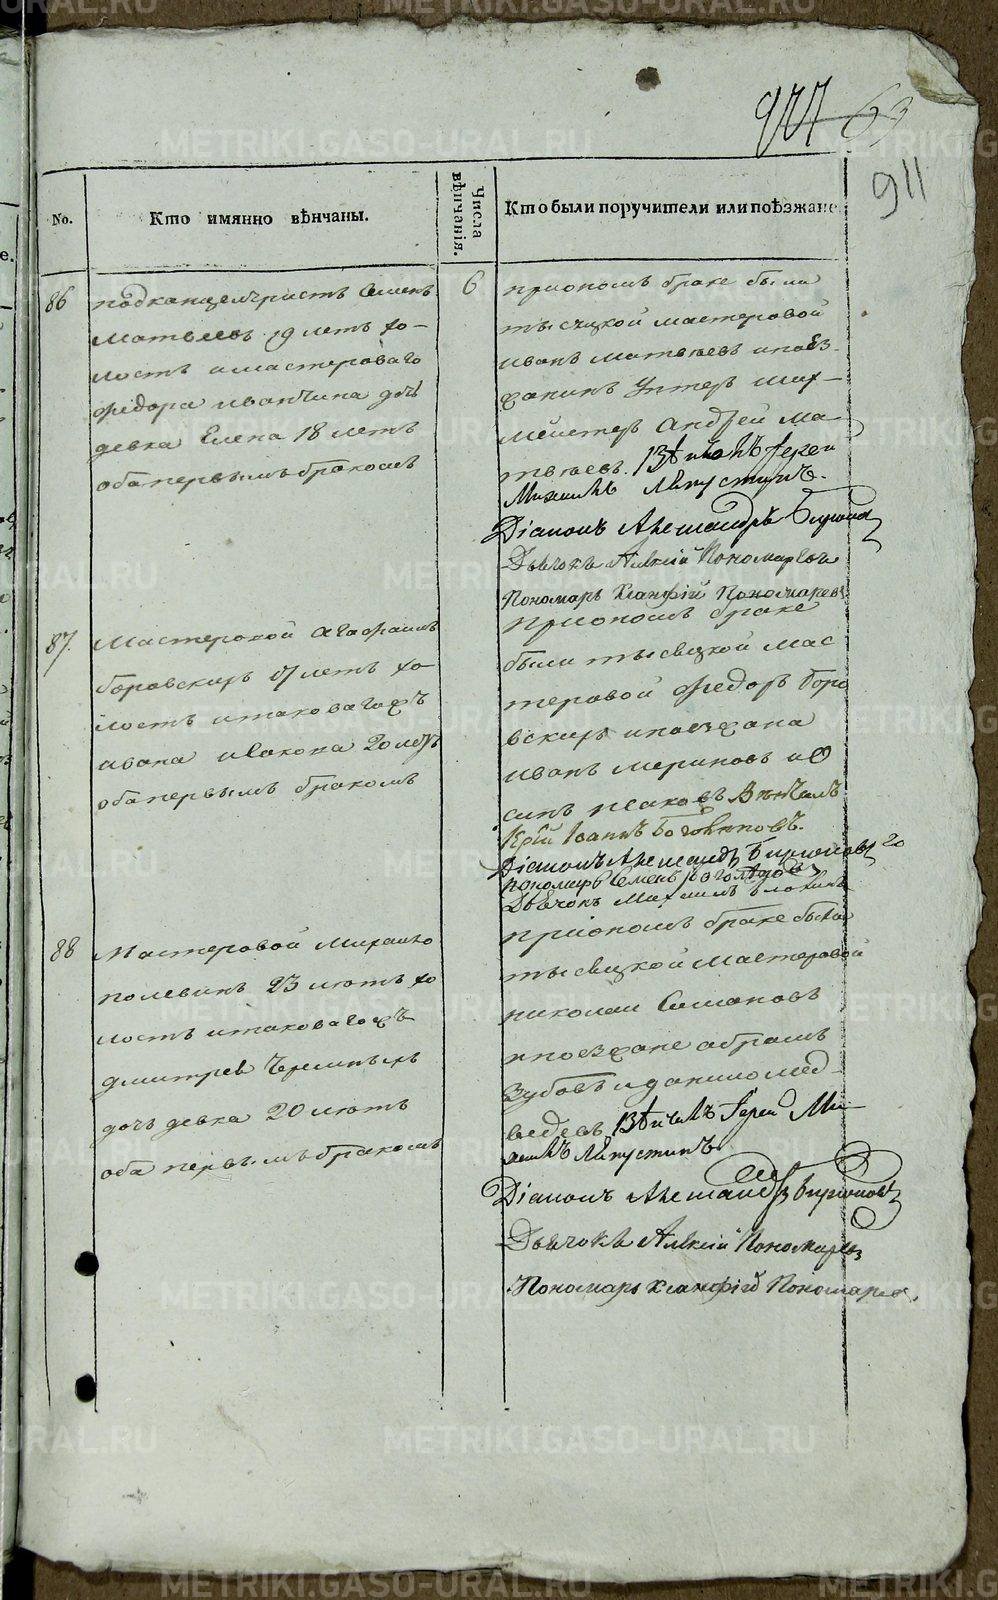 911 63
911
No.
Кто имянно вѣнчаны.
Числа вѣнчанія.
Кто были поручители или поѣзжане
86
подканцеляристъ Семенъ
Матвеевъ 19 летъ хо-
лостъ имастероваго
Федора Ивančина дочь
девка Елена 18 летъ
обапервымъ бракомъ
6
приономъ браке были
тысяцкой мастеровой
иванъ матвеевъ ипоѣз-
жанинъ Унтеръ шихт-
мейстеръ Андрей Ма-
твеевъ. Вѣнчалъ Іерей
Михаилъ Ляпустинъ.
Діаконъ Александръ Бирюковъ
Дьячокъ Алексій Пономаревъ
Пономарь Ксанфій Пономаревъ
87.
Мастеровой Агафонъ
Боровскихъ 17 летъ хо-
лостъ итаковагожъ
ивана 20 летъ
обапервымъ бракомъ
приономъ браке
были тысяцкой мас
теровой Федоръ Боро
вскихъ ипоезжана
иванъ мериновъ иО
сипъ исаковъ Вѣнчалъ
Іерей Іоаннъ
Діаконъ Александръ Бирюковъ
пономарь Семенъ
Дьячокъ Михаилъ
88
Мастеровой Михаило
полевинъ 23 летъ хо
лостъ итаковагожъ
дмитрея Черемныхъ
дочь девка 20 летъ
оба первымъ бракомъ
приономъ браке были
тысяцкой мастеровой
николаи Симановъ
ипоезжане абрамъ
Зубовъ иданило мед-
ведевъ Вѣнчалъ Іерей Ми-
хаилъ Ляпустинъ
Діаконъ Александръ Бирюковъ
Дьячокъ Алексій Пономаревъ
Пономарь Ксанфій Пономаревъ
METRIKI.GASO-URAL.RU